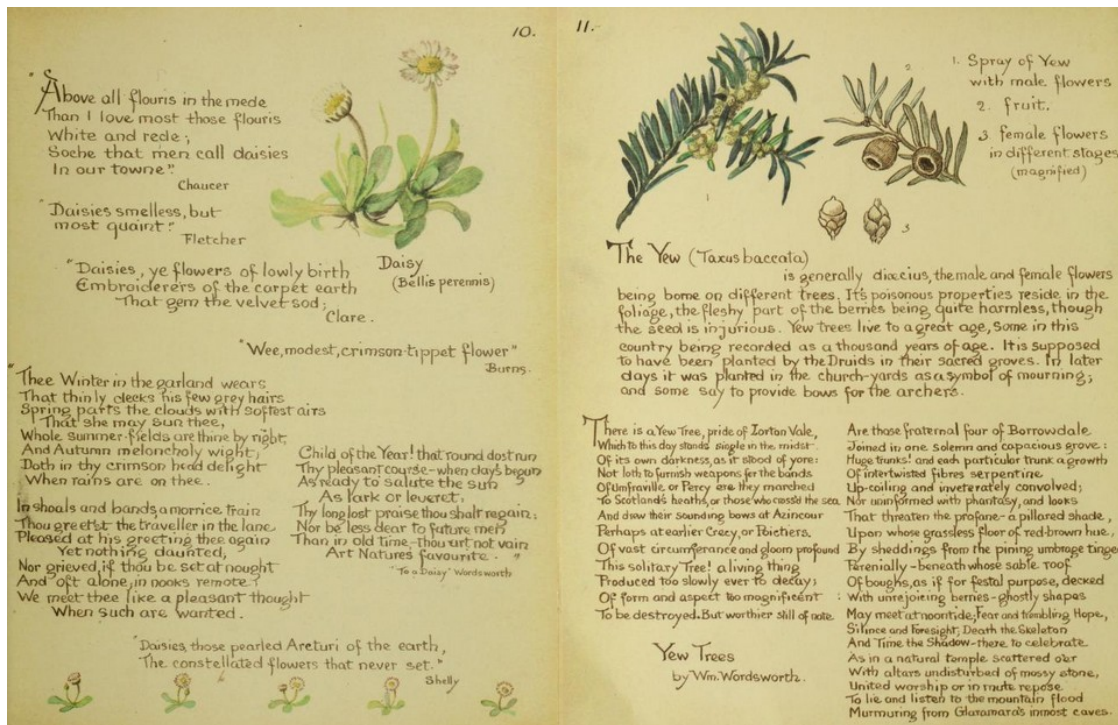 10.
"Above all flouris in the mede
Than I love most those flouris
White and rede;
Soche that men call daisies
In our towne".
Chaucer
"Daisies smelless, but
most quaint".
Fletcher
Daisy
(Bellis perennis)
"Daisies, ye flowers of lowly birth
Embroiderers of the carpet earth
That gem the velvet sod;
Clare.
"Wee, modest, crimson-tippet flower"
Burns.
"Thee Winter in the garland wears
That thinly decks his few grey hairs
Spring parts the clouds with softest airs
That she may sun thee,
Whole summer-fields are thine by right,
And Autumn melancholy wight,
Doth in thy crimson head delight
When rains are on thee.
In shoals and bands, a morrice train
Thou greet'st the traveller in the lane
Pleased at his greeting thee again
Yet nothing daunted,
Nor grieved, if thou be set at nought
And oft alone, in nooks remote
We meet thee like a pleasant thought
When such are wanted.
Child of the Year! that round dost run
Thy pleasant course - when day's begun
As ready to salute the sun
As lark or leveret,
Thy long lost praise thou shalt regain;
Nor be less dear to future men
Than in old time - thou art not vain
Art Nature's favourite. "
"To a Daisy" Wordsworth
"Daisies, those pearled Arcturi of the earth,
The constellated flowers that never set."
Shelly
11.
1. Spray of Yew
with male flowers
2. fruit.
3. female flowers
in different stages
(magnified)
2
1
3
The Yew (Taxus baccata)
is generally diœcius, the male and female flowers
being borne on different trees. It's poisonous properties reside in the
foliage, the fleshy part of the berries being quite harmless, though
the seed is injurious. Yew trees live to a great age, some in this
country being recorded as a thousand years of age. It is supposed
to have been planted by the Druids in their sacred groves. In later
days it was planted in the church-yards as a symbol of mourning;
and some say to provide bows for the archers.
There is a Yew Tree, pride of Lorton Vale,
Which to this day stands single in the midst
Of its own darkness, as it stood of yore:
Not loth to furnish weapons for the bands
Of Umfraville or Percy ere they marched
To Scotland's heaths, or those who cross'd the sea
And drew their sounding bows at Azincour
Perhaps at earlier Crecy, or Poictiers.
Of vast circumferance and gloom profound
This solitary Tree! a living thing
Produced too slowly ever to decay;
Of form and aspect too magnificent
To be destroyed. But worthier still of note
Are those fraternal four of Borrowdale
Joined in one solemn and capacious grove:
Huge trunks! and each particular trunk a growth
Of intertwisted fibres serpentine
Up-coiling and inveterately convolved;
Nor uninformed with phantasy, and looks
That threaten the profane - a pillared shade,
Upon whose grassless floor of red-brown hue,
By sheddings from the pining umbrage tinged
Perenially - beneath whose sable roof
Of boughs, as if for festal purpose, decked
With unrejoicing berries - ghostly shapes
May meet at noontide; Fear and trembling Hope,
Silence and Foresight; Death the Skeleton
And Time the Shadow - there to celebrate
As in a natural temple scattered o'er
With altars undisturbed of mossy stone,
United worship or in mute repose
To lie and listen to the mountain flood
Murmuring from Glaramara's inmost caves.
Yew Trees
by Wm. Wordsworth.